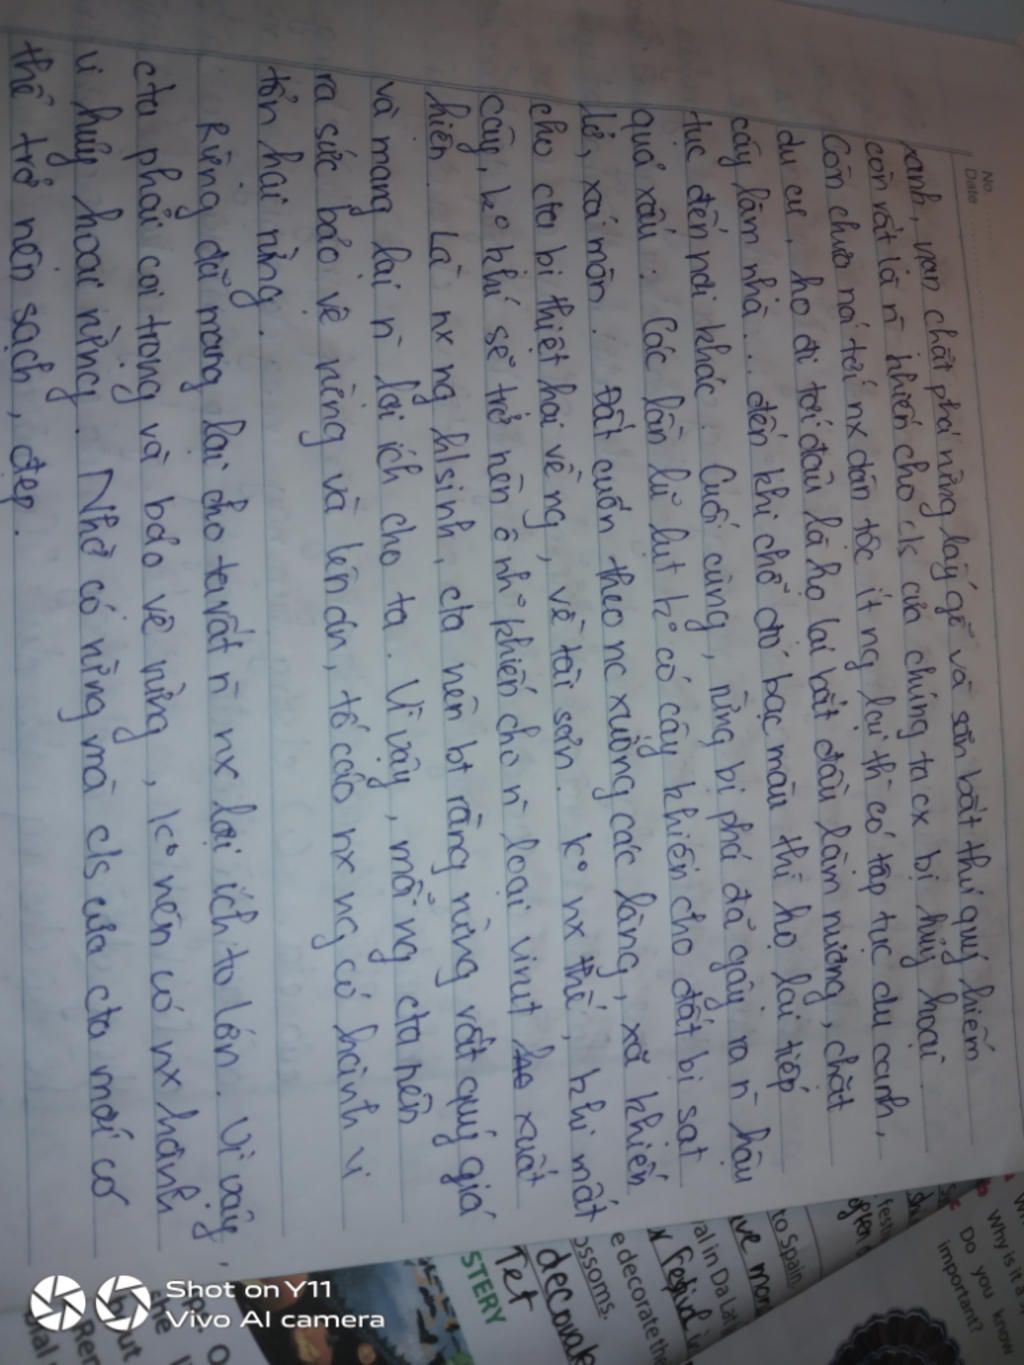 No.
Date
xanh, nạn chặt phá rừng lấy gỗ và săn bắt thú quý hiếm
còn rất là n̄ khiến cho c/s của chúng ta cx bị hủy hoại.
Còn chưa nói tới nx dân tộc ít ng lại thì có tập tục du canh,
du cư, họ đi tới đâu là họ lại bắt đầu làm nương, chặt
cây làm nhà... đến khi chỗ đó bạc màu thì họ lại tiếp
tục đến nơi khác. Cuối cùng, rừng bị phá đã gây ra n̄ hậu
quả xấu: Các lần lũ lụt kº có cây khiến cho đất bị sạt
lở, xói mòn. Đất cuốn theo nc xuống các làng, xã khiến
cho cta bị thiệt hại về ng, về tài sản. Kº nx thế, khi mất
cây, kº khí sẽ trở nên ô nhº khiến cho n̄ loại virut xuất
hiện. Là nx ng h/sinh, cta nên bt rằng rừng rất quý giá
và mang lại n̄ lợi ích cho ta. Vì vậy, mỗi ng cta nên
ra sức bảo vệ rừng và lên án, tố cáo nx ng có hành vi
tổn hại rừng.
Rừng đã mang lại cho ta rất n̄ nx lợi ích to lớn. Vì vậy,
cta phải coi trọng và bảo vệ rừng, kº nên có nx hành
vi hủy hoại rừng. Nhờ có rừng mà c/s của cta mới có
thể trở nên sạch, đẹp.
Shot on Y11
Vivo AI camera
STERY
Tet
decorate
ossoms.
e decorate the
ral in Da Lat
to Spain
Why is it a
Do you know
important?